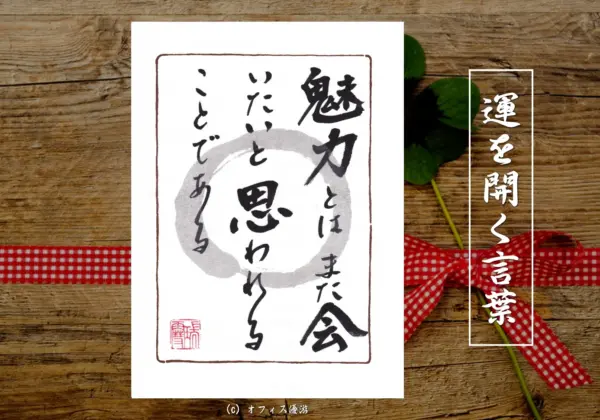 魅力とは また会
いたいと思われる
ことである
運を開く言葉
(C) オフィス優游